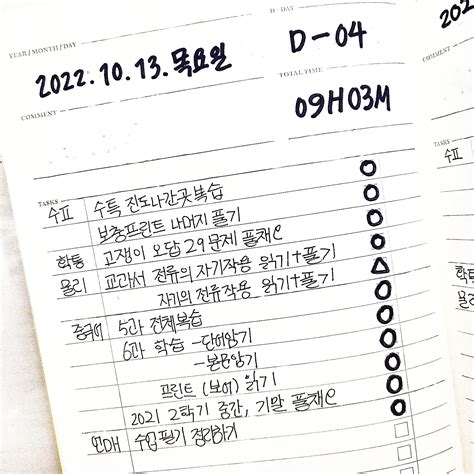 YEAR / MONTH / DAY
2022.10.13.목요일
D-DAY
D-04
TOTAL TIME
09H03M
COMMENT
TASKS
수표 수특 진도나간곳 복습
보충프린트 나머지 풀기
학통 고쟁이 오답 29문제 풀채
물리 교과서 전류의 자기작용 읽기+풀기
자기의 전류작용 읽기+풀기
중국어 5과 전체복습
6과 학습 - 단어암기
- 본문암기
프린트 (보어) 읽기
2021 2학기 중간, 기말 풀채
수업필기 정리하기
COMMENT
TASKS